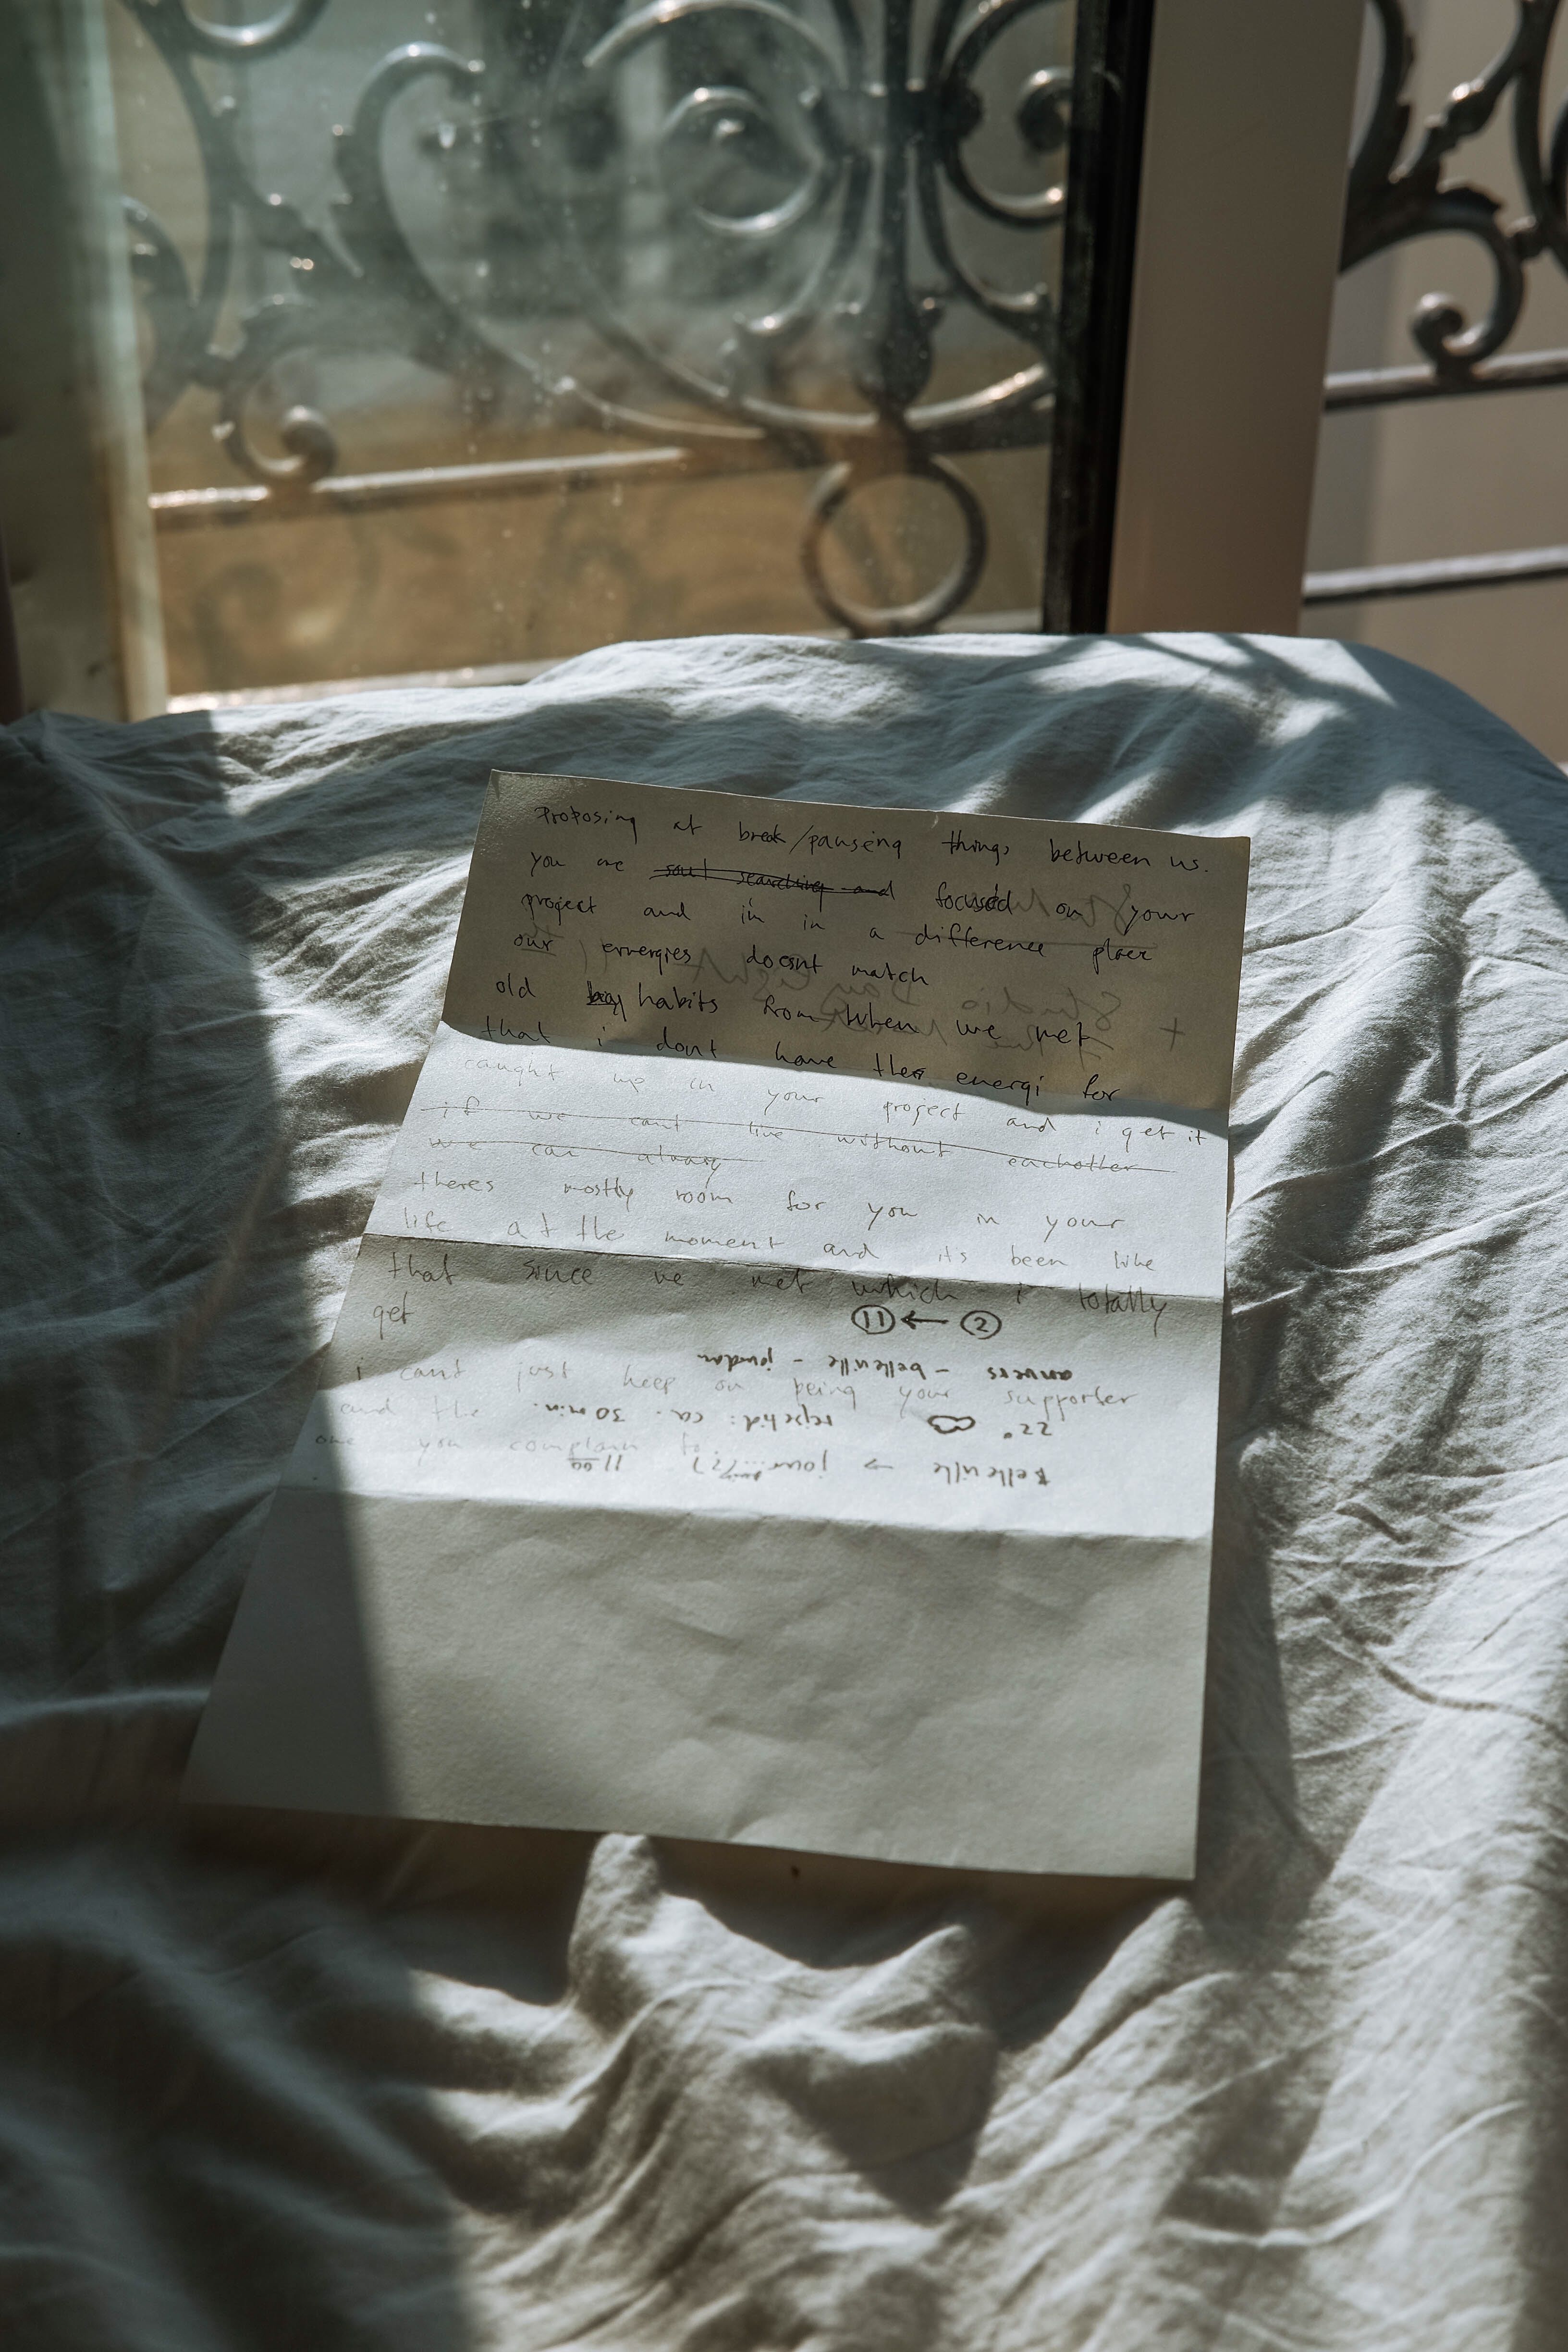 Proposing at break/pauseing things between us.
you are soul searching and focused on your
project and in in a difference place
our envergies doesnt match
old habits from when we met
that i dont have the energi for
caught up in your project and i get it
if we cant live without eachother
we can always
theres mostly room for you in your
life at the moment and its been like
that since we met which i totally
get
i cant just keep on being your supporter
and the
one you complain to
Belleville → 11
22° rejsetid: ca. 30 min.
anvers - belleville - jourdan
② → ⑪
Studio
+